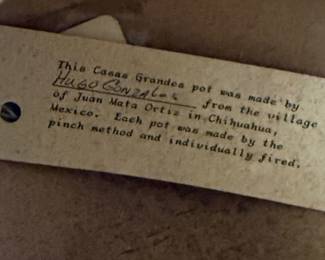 This Casas Grandes pot was made by
HUGO GONZALES from the village
of Juan Mata Ortiz in Chihuahua,
Mexico. Each pot was made by the
pinch method and individually fired.